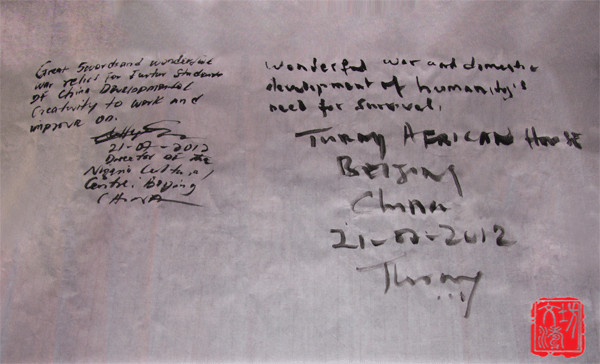 Great Sword and wonderful
war relict for further students
of China Developmental
Creativity to work and
improve on.
21-07-2012
Director of the
Nigeria Cultural
Centre, Beijing
China
Wonderful war and domestic
development of humanity's
need for survival.
Tunny AFRICAN House
BEIJING
China
21-07-2012
Tunny